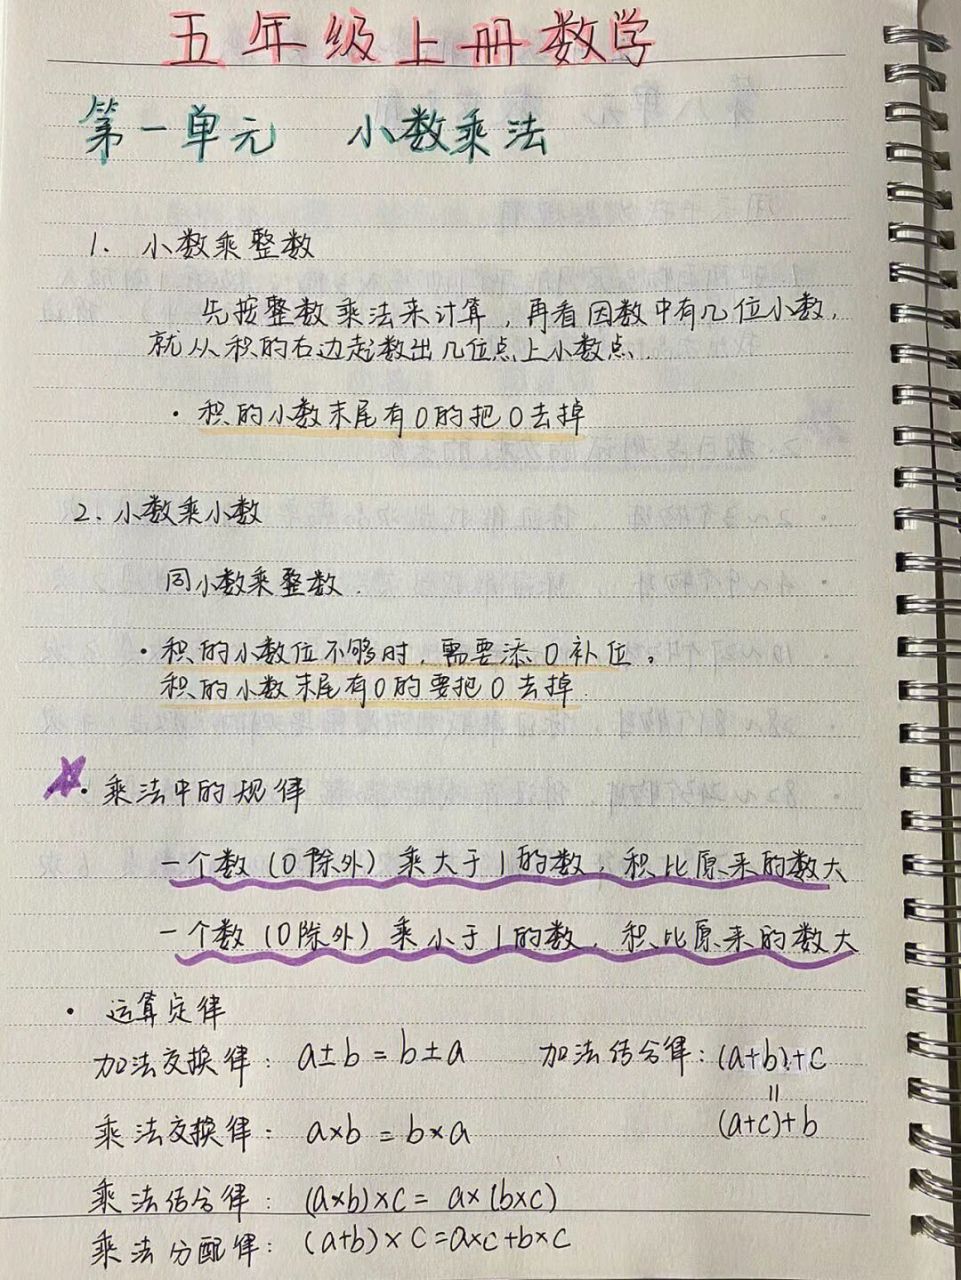 五年级上册数学
第一单元 小数乘法
1. 小数乘整数
先按整数乘法来计算，再看因数中有几位小数，
就从积的右边起数出几位点上小数点.
· 积的小数末尾有0的把0去掉
2、小数乘小数
同小数乘整数.
· 积的小数位不够时，需要添0补位。
积的小数末尾有0的要把0去掉.
· 乘法中的规律
一个数（0除外）乘大于1的数，积比原来的数大
一个数（0除外）乘小于1的数，积比原来的数大
· 运算定律
加法交换律： a±b=b±a 加法结合律：(a+b)+c
=
(a+c)+b
乘法交换律： a×b=b×a
乘法结合律： (a×b)×c= a×(b×c)
乘法分配律： (a+b)×c=a×c+b×c